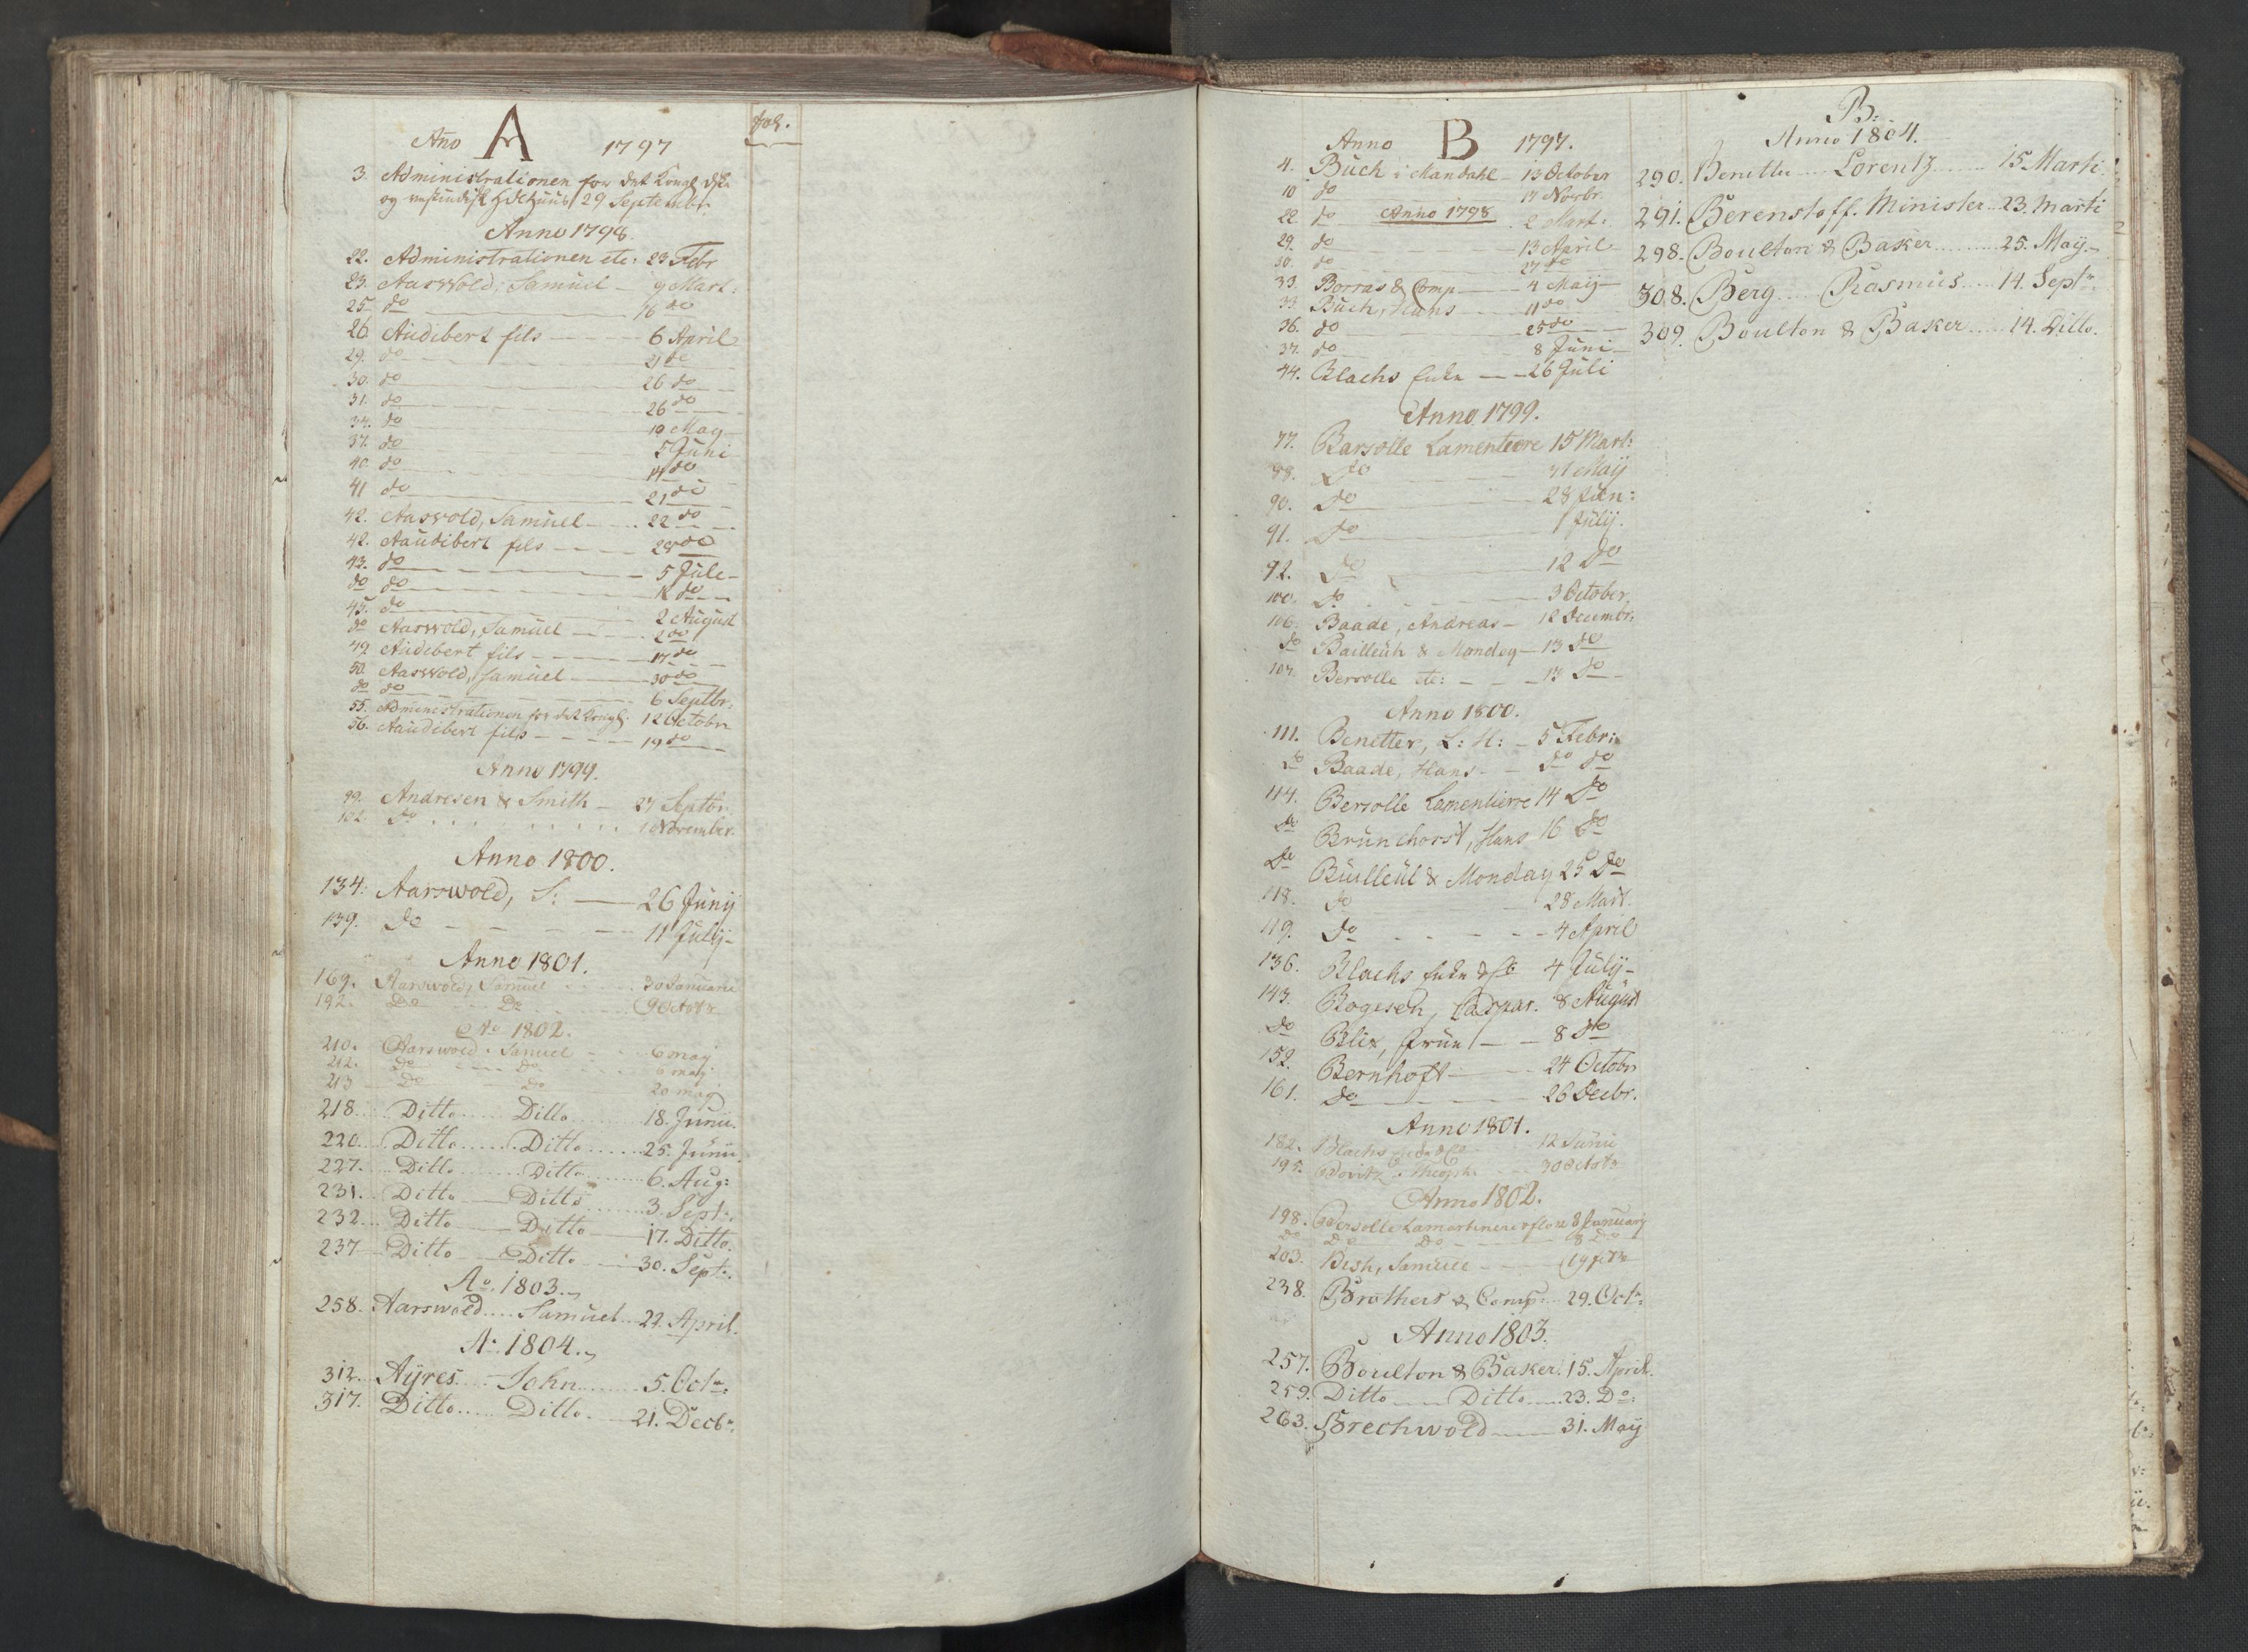 Año A 1797
Fol.
3. Administrationen for det Kongl Ost
og vestindisk Hdlhuus 29 Septembr
Anno 1798.
22. Administrationen etc: 23 Febr
23. Aarswold, Samuel - 9 Mart:
25 do 16 do
26 Audibert fils - 6 April
29. do 21 do
30. do 26 do
31. do 26 do
34. do 10 May
37. do 5 Juni
40. do 14 do
41 do 21 do
42. Aaswold, Samuel - 22 do
42. Aaudibert fils - 28 do
43. do 5 Jule
do do 12 do
45. do 2 August
do Aarswold, Samuel - 2 do
49 Audibert fils - 17 do
50. Aarswold, Samuel - 30 do
do do 6 Septbr:
55. Administrationen for det Kongl: 12 Octobr
56. Aaudibert fils - 19 do
Anno 1799.
99. Andresen & Smith - 27 Septbr.
102. Do 1 November.
Anno 1800.
134. Aarswold, S: - 26 Junij
139. Do 11 Julij
Anno 1801.
169. Aarswold, Samuel 30 Januarii
192. Do Do 9 Octobr
Ao 1802.
210. Aarswold. Samuel 6 may
212. Do Do 6 may
213 Do Do 20 may
218. Ditto Ditto 18. Junii.
220. Ditto Ditto 25. Junii.
227. Ditto Ditto 6. Aug:
231. Ditto Ditto 3. Sept:
232. Ditto Ditto 17. Ditto.
237 Ditto Ditto 30. Sept:
Ao. 1803.
258. Aarswold Samuel 22. April.
Ao. 1804.
312. Ayres John 5. Octr:
317. Ditto Ditto 21. Decbr.
Anno B 1797.
4. Buch i Mandahl - 13 October
10 do 17 Novbr
Anno 1798
22. do 2 Mart:
29. do 13 April
30. do 27 do
33. Borras & Comp - 4 May
33. Buch, Hans 11 do
36. do 25 do
37. do 8 Juni
44. Blachs Enke - 26 Juli
Anno 1799.
77. Barsolle Lamentierre 15 Mart:
88. Do 31 Maij
90. Do 28 Jun:
91. Do 1 Julij.
92. Do 12 Do
100. Do 3 October
106. Baade, Andreas - 12 Decembr:
do Bailleuh & Monday - 13 do
107. Bersolle etc: - 13 Do
Anno 1800.
111. Benetter, L: H: - 5 Febr:
do Baade, Hans - do do
114. Bersolle Lamentierre 14 Do
do Brunchorst, Hans 16 Do
Do Builleul & Monday 25 Do
118. do 28 Mart.
119. Do 4 April
136. Blachs Enke & Co 4 Julij
143. Bogesen, Caspar. 8 August
do Blix, Frue - 8 do
152. Bernhoft - 24 Octobr
161. Do 26 Decbr.
Anno 1801.
182. Blachs Enke & Co 12 Junii
195. 30 Octobr
Anno 1802.
198. Bersolle Lamartinere & flere 8 January
Do Do Do 8 Do
203. Bish, Samuel 19 febr
238. Brothers & Comp: 29. Octr:
Anno 1803.
257. Boulton & Baker. 15. April.
259. Ditto Ditto 23. Do:
263. Brechwold 31. May
B:
Anno 1804.
290. Benetter Lorentz 15. Marti.
291. Berenstoff. Minister 23. marti
298. Boulton & Baker 25. May
308. Berg Rasmus 14. Septr
309. Boulton & Baker 14. Ditto.